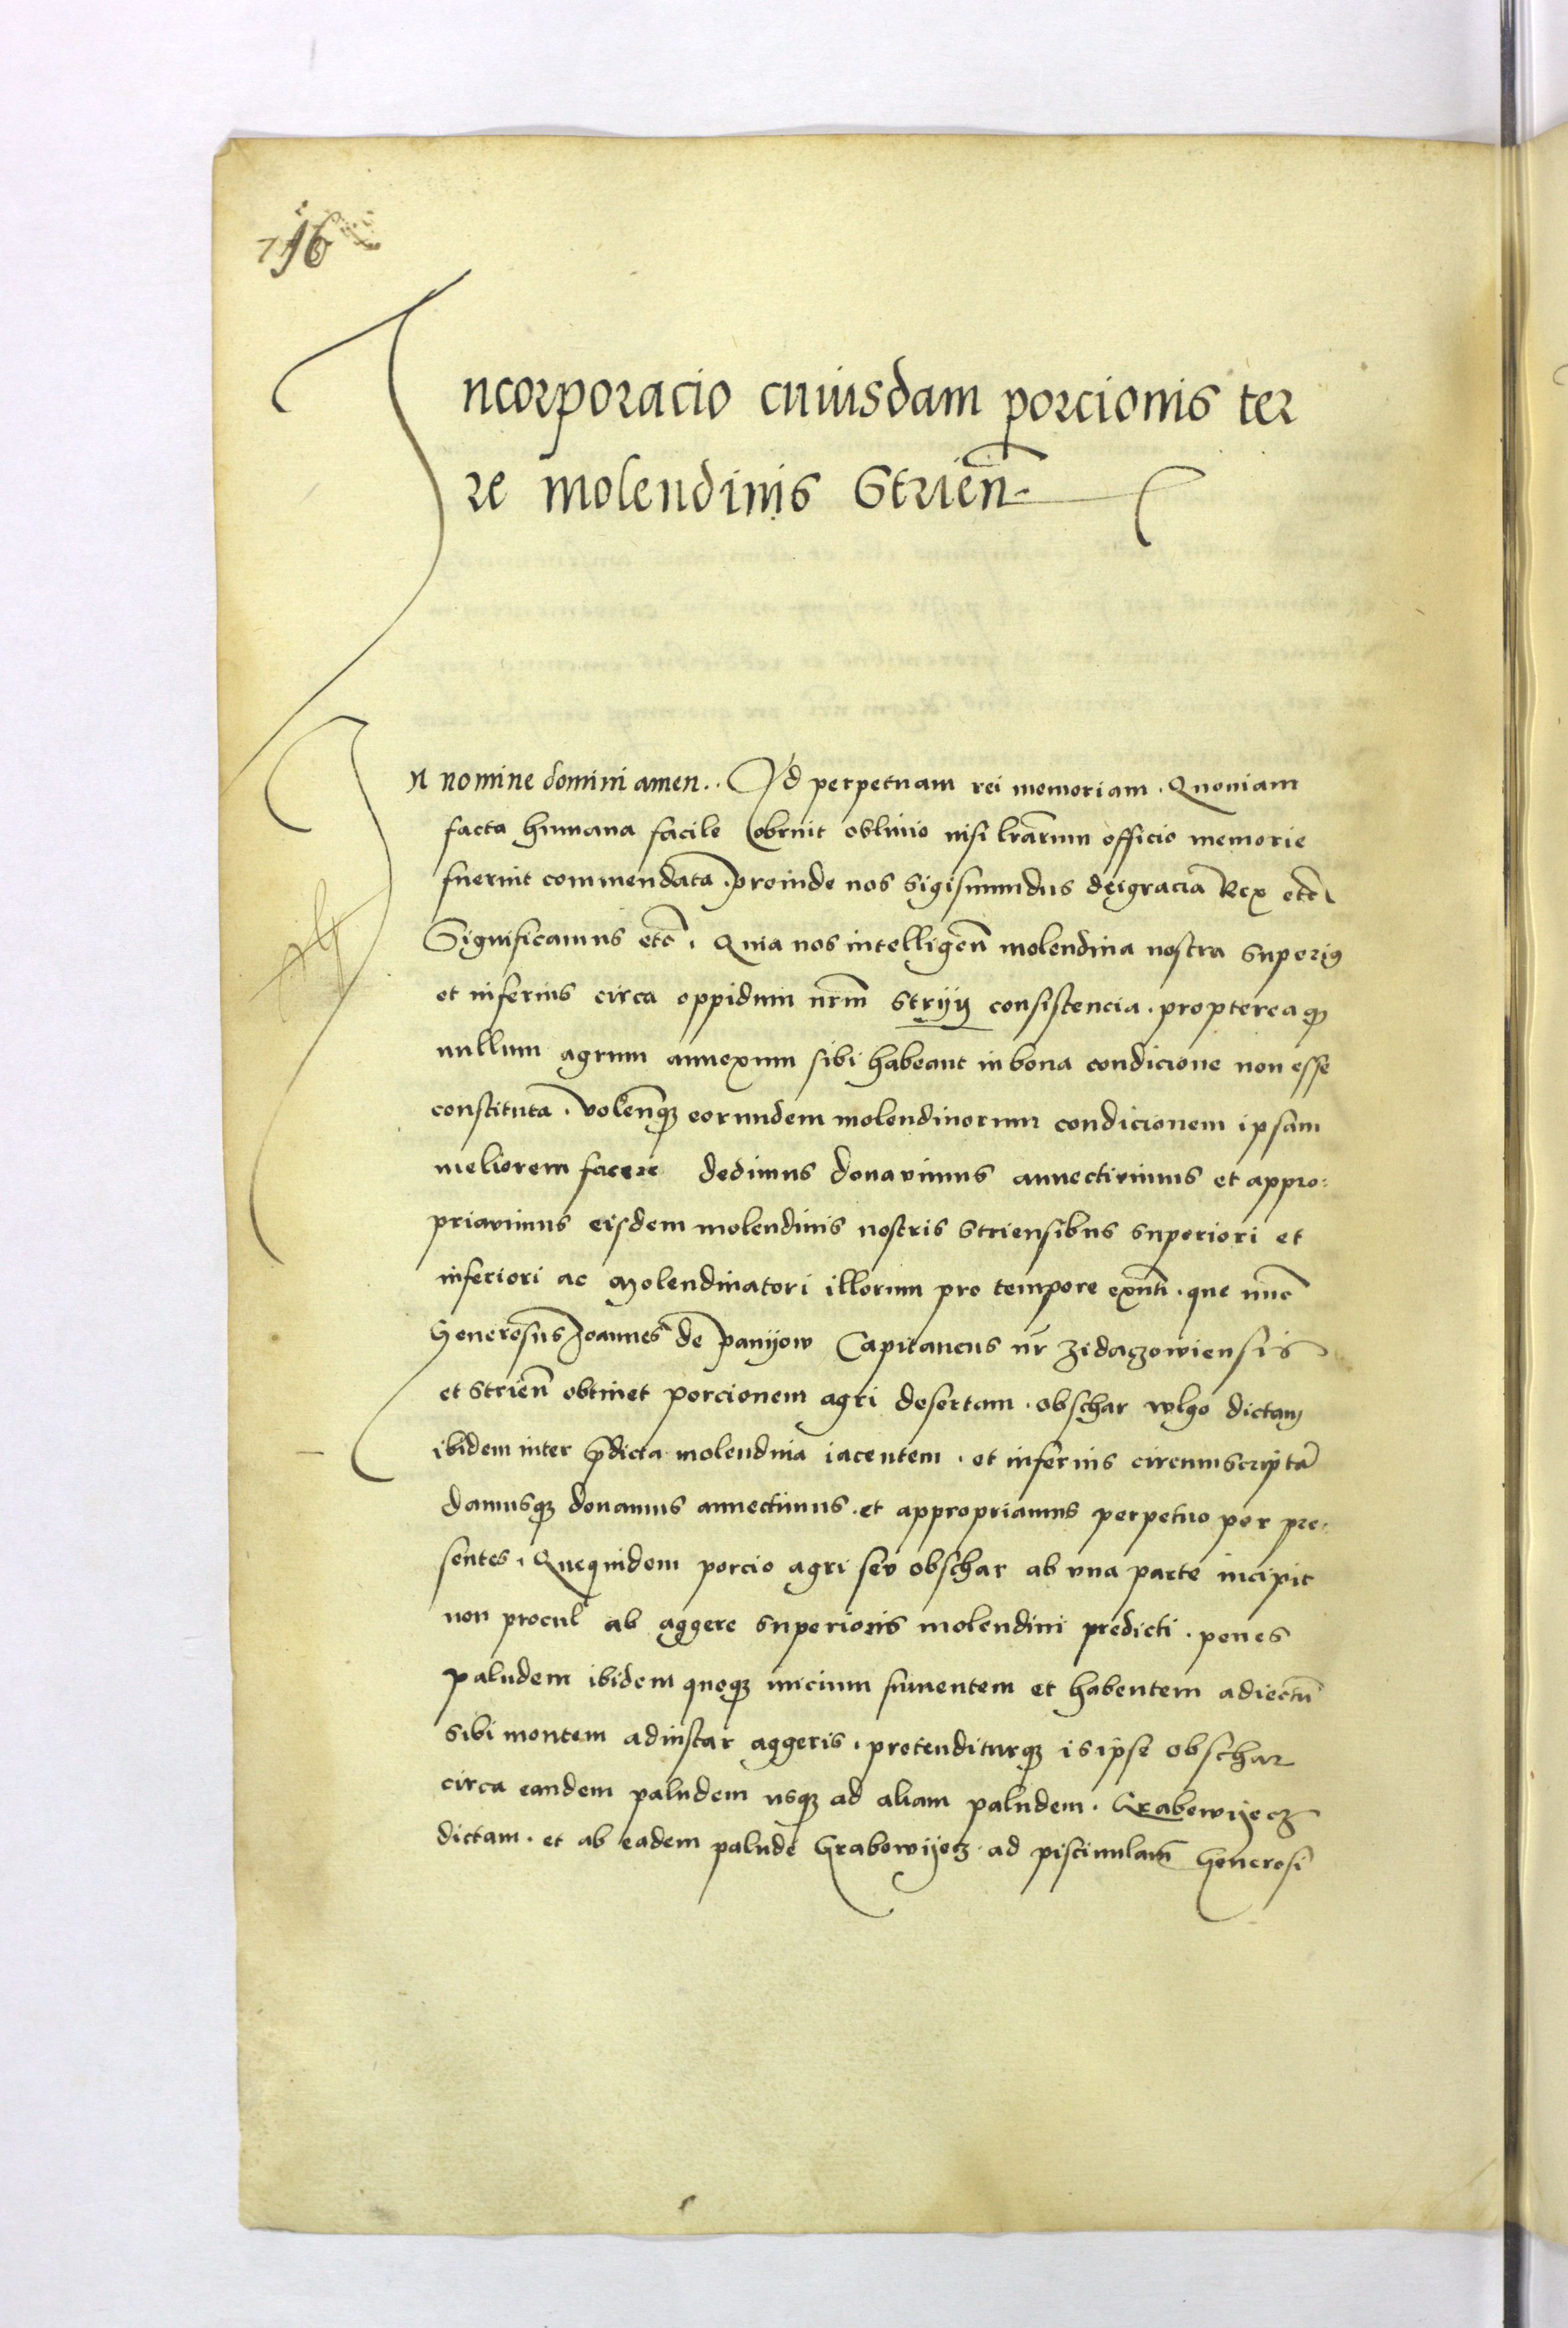 716
Incorporacio cuiusdam porcionis ter
re molendinis Strien̄
In nomine domini amen. Ad perpetuam rei memoriam. Quoniam
facta humana facile obruit oblivio nisi lrarum officio memorie
fuerint commendata. proinde nos Sigismundus dei gracia Rex etc̄
Significamus etc̄. Quia nos intelligen̄ molendina nostra superius
et inferius circa oppidum nr̄m Stryy consistencia. propterea qȝ
nullum agrum annexum sibi habeant in bona condicione non esse
constituta. volen̄qȝ eorundem molendinorum condicionem ipsam
meliorem facere dedimus donavimus annectivimus et appro:
priavimus eisdem molendinis nostris Striensibus superiori et
inferiori ac Molendinatori illorum pro tempore exn̄ti. que nunc
Generosus Joannes de Panyow Capitaneus nr̄ Zidaczowiensis
et Strien̄ obtinet porcionem agri desertam. obschar wlgo dictam
ibidem inter p̄dicta molendina iacentem. et inferius circumscriptā
damusqȝ donamus annectimus. et appropriamus perpetuo per pre:
sentes. Quequidem porcio agri seu obschar ab una parte incipit
non procul ab aggere superioris molendini predicti. penes
paludem ibidem quoqȝ inicium sumentem et habentem adiectū
sibi montem adinstar aggeris. protenditurqȝ is ipse obschar
circa eandem paludem usqȝ ad aliam paludem. Grabowyecz
dictam. et ab eadem palude Grabowyecz. ad piscinulam Generosi